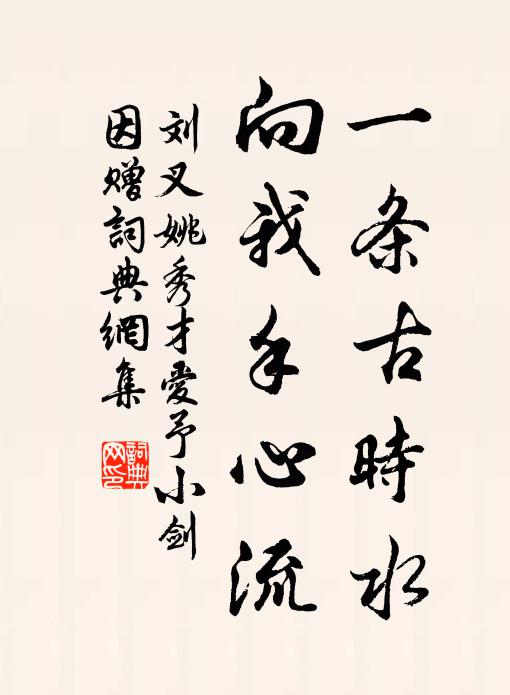 一条古時水
向我手心流
刘叉姚秀才愛予小剑
因赠詞典網集
詞典网印